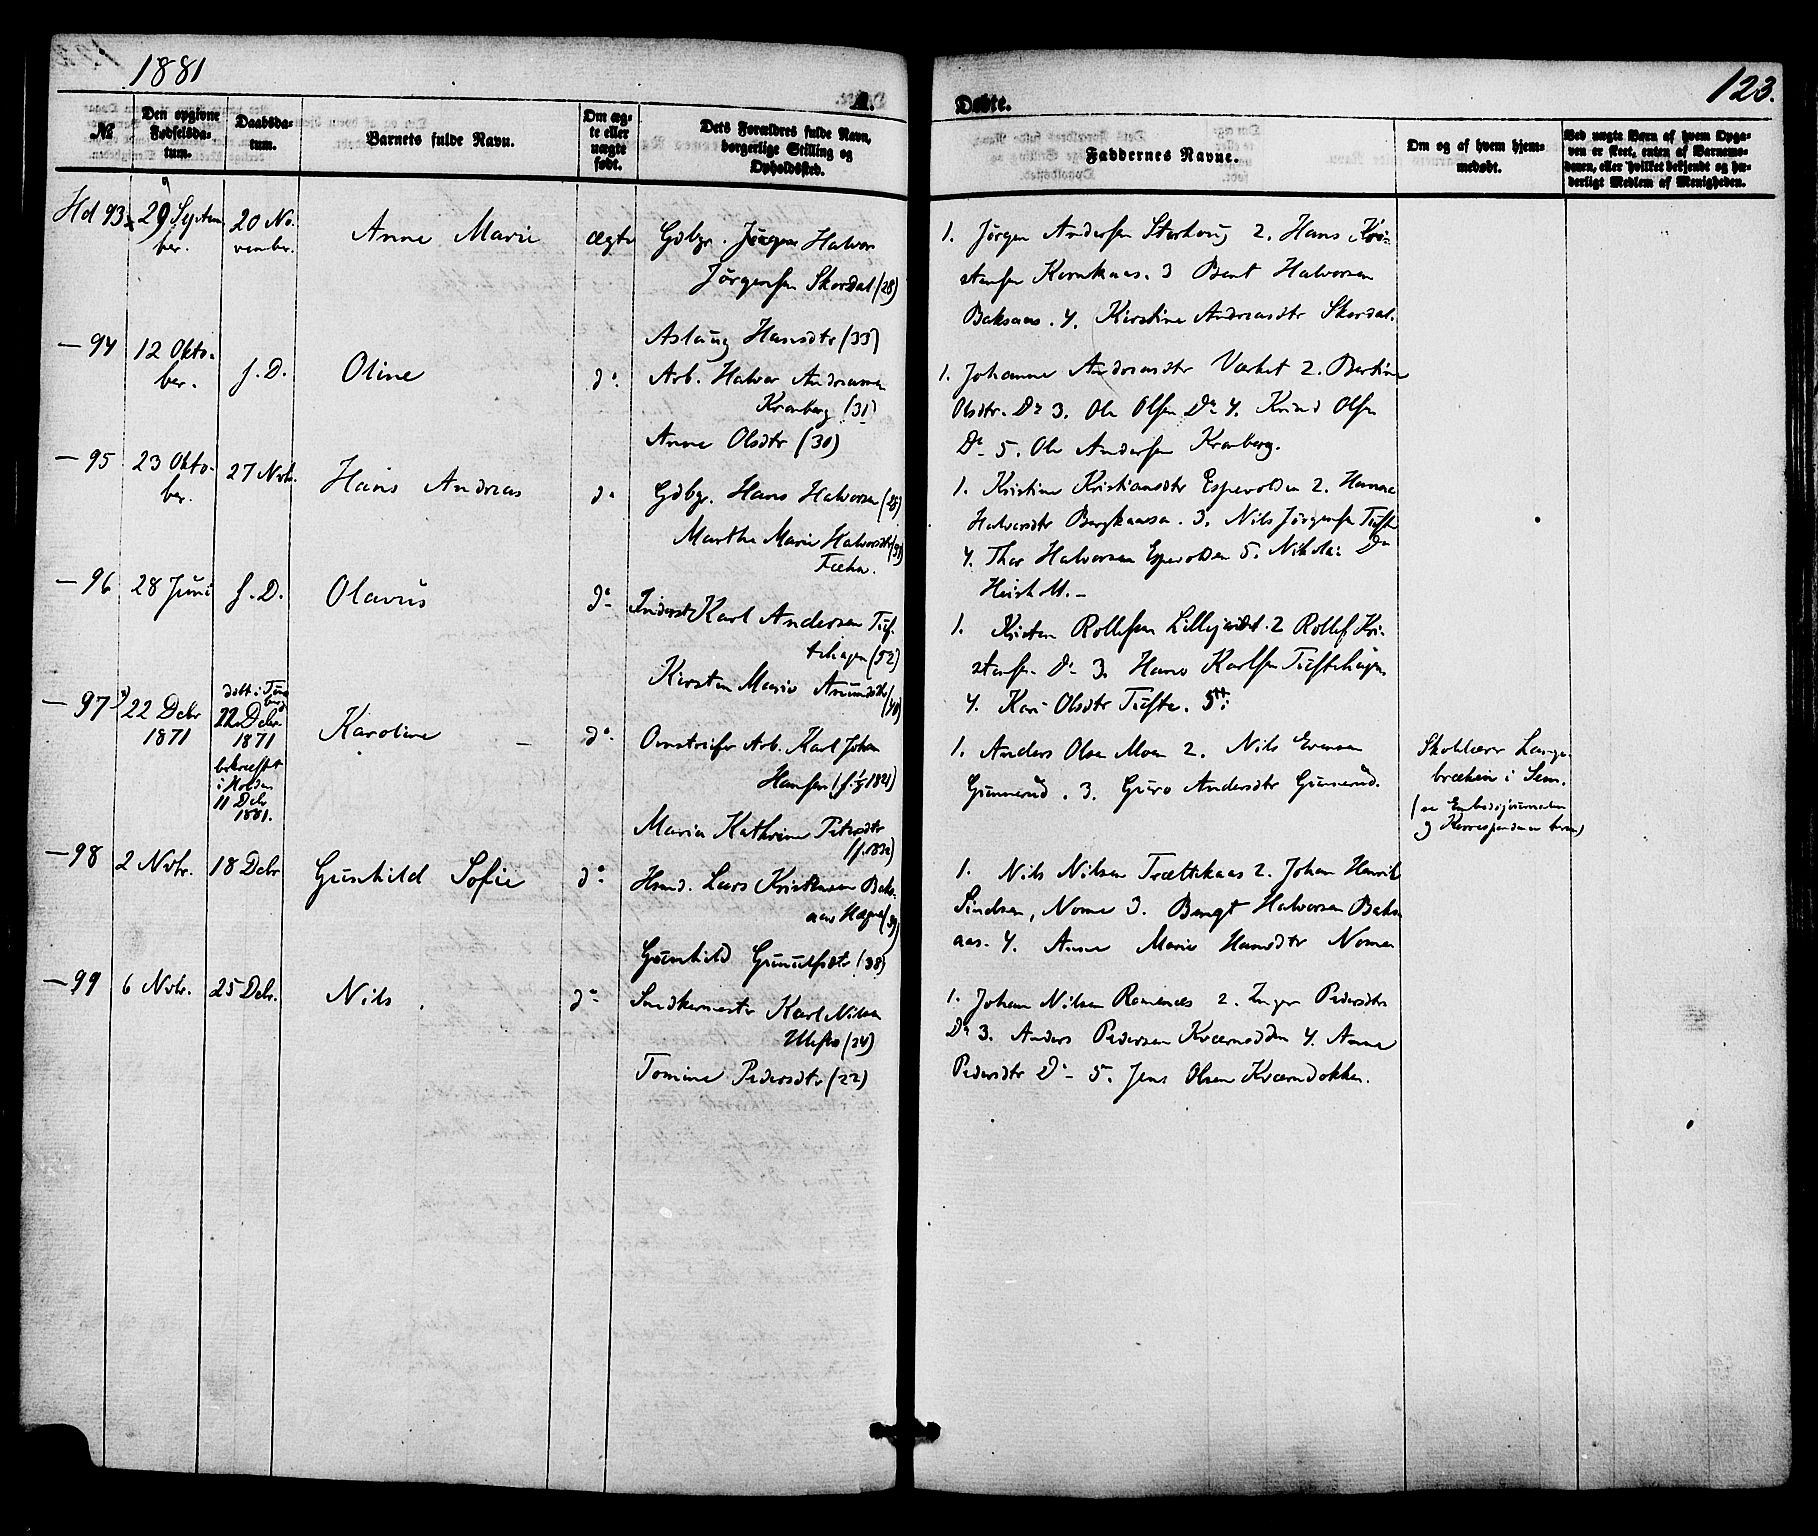 1881
A.
Døbte.
123.
№
Den opgivne Fødselsdatum.
Daabsdatum.
Barnets fulde Navn.
Om ægte eller uægte født.
Dets Forældres fulde Navn, borgerlige Stilling og Opholdssted.
Faddernes Navne.
Om og af hvem hjemmedøbt.
Ved uægte Børn af hvem Opgaven er skeet, enten af Barnemoderen, eller hvilket bekjendt og hæderligt Medlem af Menigheden.
Hd 93
29 Septem
ber.
20 No-
vember.
Anne Marie
ægte
Gdbgr. Halvor
Jørgensen Skordal (28)
Aslaug Hansdtr (33)
1. Jørgen Andersen Storhoug 2. Hans Kri-
stensen Kornkaas. 3 Bent Halvorsen
Baksaas. 4. Kirstine Andreasdtr Skordal.
— 94
12 Okto-
ber.
f. D.
Oline
do.
Arb. Halvor Andreasen
Kronberg (31)
Anne Olsdtr (30)
1. Johanne Andreasdtr Værket 2. Bertine
Olsdtr. Do 3. Ole Olsen Do 4. Knud Olsen
Do 5. Ole Andersen Kronberg.
— 95
23 Okto-
ber.
27 Nvbr.
Hans Andreas
do
Gdbgr. Hans Halvorsen (28)
Marthe Marie Halvorsdtr
Fæhn.
1. Kristine Kristiansdtr Espevolden 2. Hanna
Halvorsdtr Bergkaasa. 3. Nils Jørgensen Tufte
4. Thor Halvorsen Espevolden 5. Nikolai Do
Heisholt. —
— 96
28 Juni
f. D.
Olavus
do
Inderst Karl Andersen Tuf-
tehagen (52)
Kirsten Marie Amundsdtr (40)
1. Kristen Rollefsen 2 Rollef Kri-
stensen Do 3. Hans Karlsen Tuftehagen
4. Kari Olsdtr Tufte. 5
— 97
22 Debr
1871
døbt i Tøns
berg
22 Debr
1871
bekræftet
i Holden
11 Debr
1881.
Karoline
do
Omstreifer Arb. Karl Johan
Hansen
Maria Kathrine Petersdtr
1. Anders Olsen Moen 2. Nils Evensen
Gunnerud. 3. Guro Andersdtr Gunnerud.
Skolelærer Lange-
brækken i Sem.
(se Embedsjournalen
og Korrespondancen herom)
— 98
2 Nvbr.
18 Debr
Gunhild Sofie
do
Hsmd. Lars Kristensen Baks-
aas Hagen (39)
Gunhild Gunulfsdtr (38)
1. Nils Nilsen Trættekaas 2. Johan Henrik
Sindsen, Nome 3. Bengt Halvorsen Baks
aas. 4. Anne Marie Hansdtr Nomen
— 99
6 Nvbr.
25 Debr.
Nils
do
Snedkermester Karl Nilsen
Ulefos (24)
Tomine Pedersdtr (22)
1. Johan Nilsen Romenæs 2. Inger Pedersdtr
Do 3. Anders Pedersen Kværnodden 4. Anne
Pedersdtr Do 5. Jens Olsen Kværndokken.